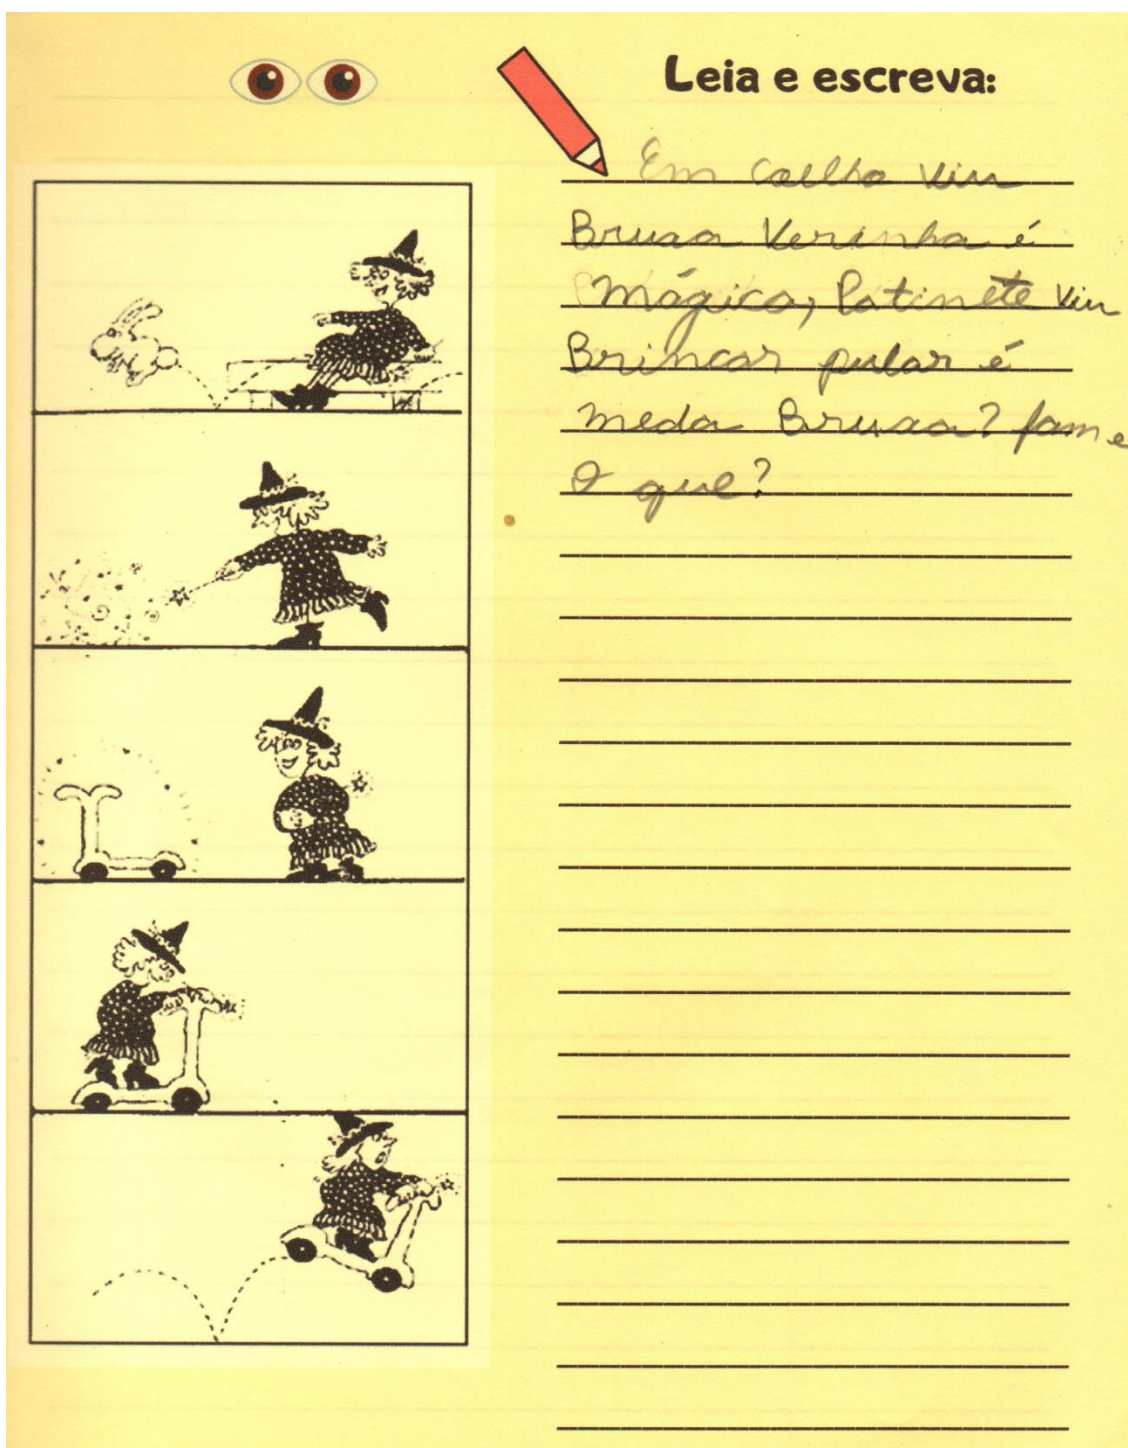 Leia e escreva:
Em Coelho viu
Bruxa Verinha é
Mágica, Patinete viu
Brincar pular é
meda Bruxa? fam e
O que?